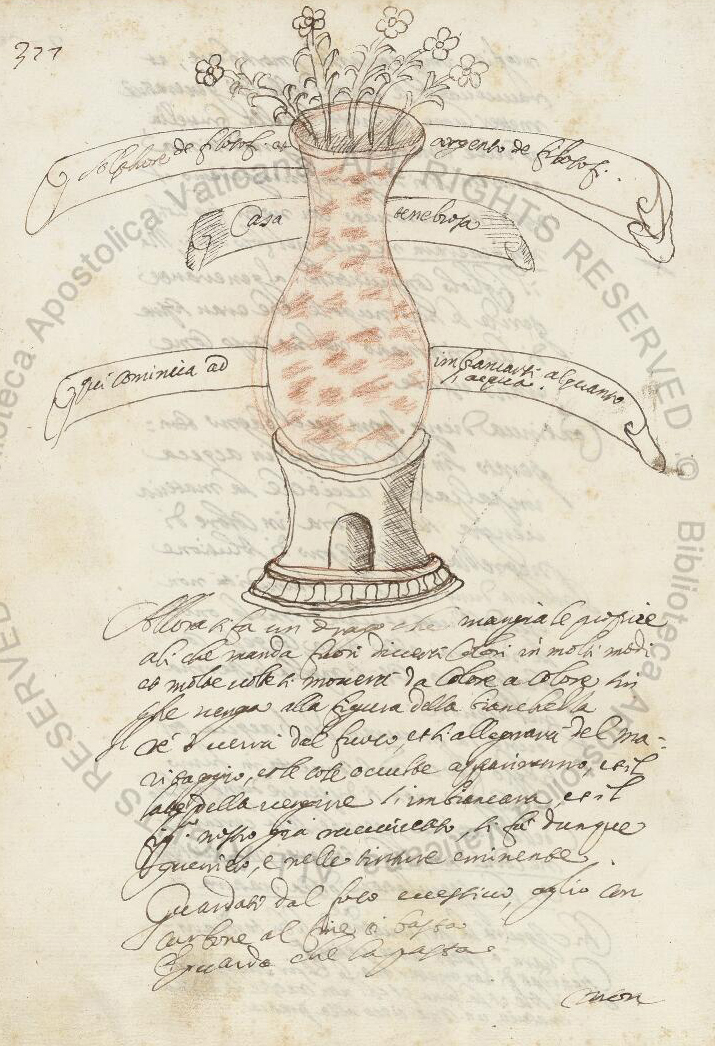 377
Solphore de filosofi et argento de filosofi.
Casa tenebrosa
Qui Comincia ad imbiancarsi alquanto
l'acqua.
Allora si fa un drago che mangia le proprie
ali che manda fuori diversi Colori in molti modi
et molte volte si moverà da Colore a Colore sin
che venga alla figura della bianchella
del fuoco, et si allegrarà del ma-
ritaggio, et le cose occulte appariranno, et il
della vergine s'imbiancarà, et il
nostro già si fa dunque
e nelle tinture eminente.
Guardati dal foco eccessivo, aglio con
carbone al fine
che la passa
non
Biblioteca Apostolica Vaticana ALL RIGHTS RESERVED ©